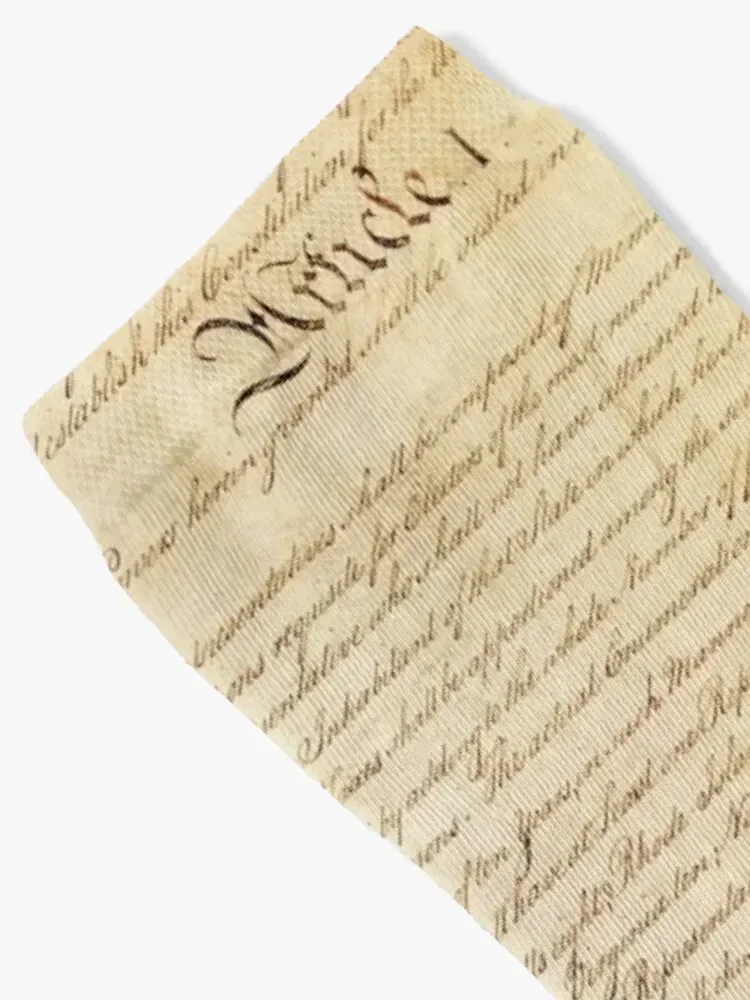 establish this Constitution for the
Article I
powers herein granted shall be vested in a
resentatives shall be composed of Mem
ons requisite for Electors of the most numerou
sentative who shall not have attained t
Inhabitant of that State in which he sh
axes shall be apportioned among the se
by adding to the whole Number of
ons. The actual Enumeration
of ten Years, in such Manne
ll have at Least one Rep
ts eight, Rhode Isla
Virginia ten, N
Representat